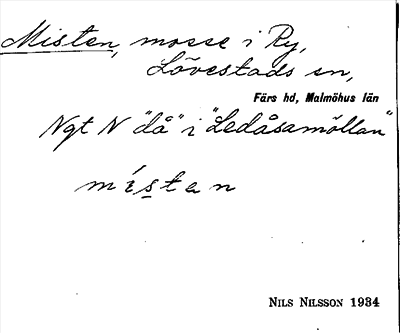 Misten, mosse i Ry,
Lövestads sn,
Färs hd, Malmöhus län
Ngt N "då" i "Ledåsamöllan"
místen
NILS NILSSON 1934